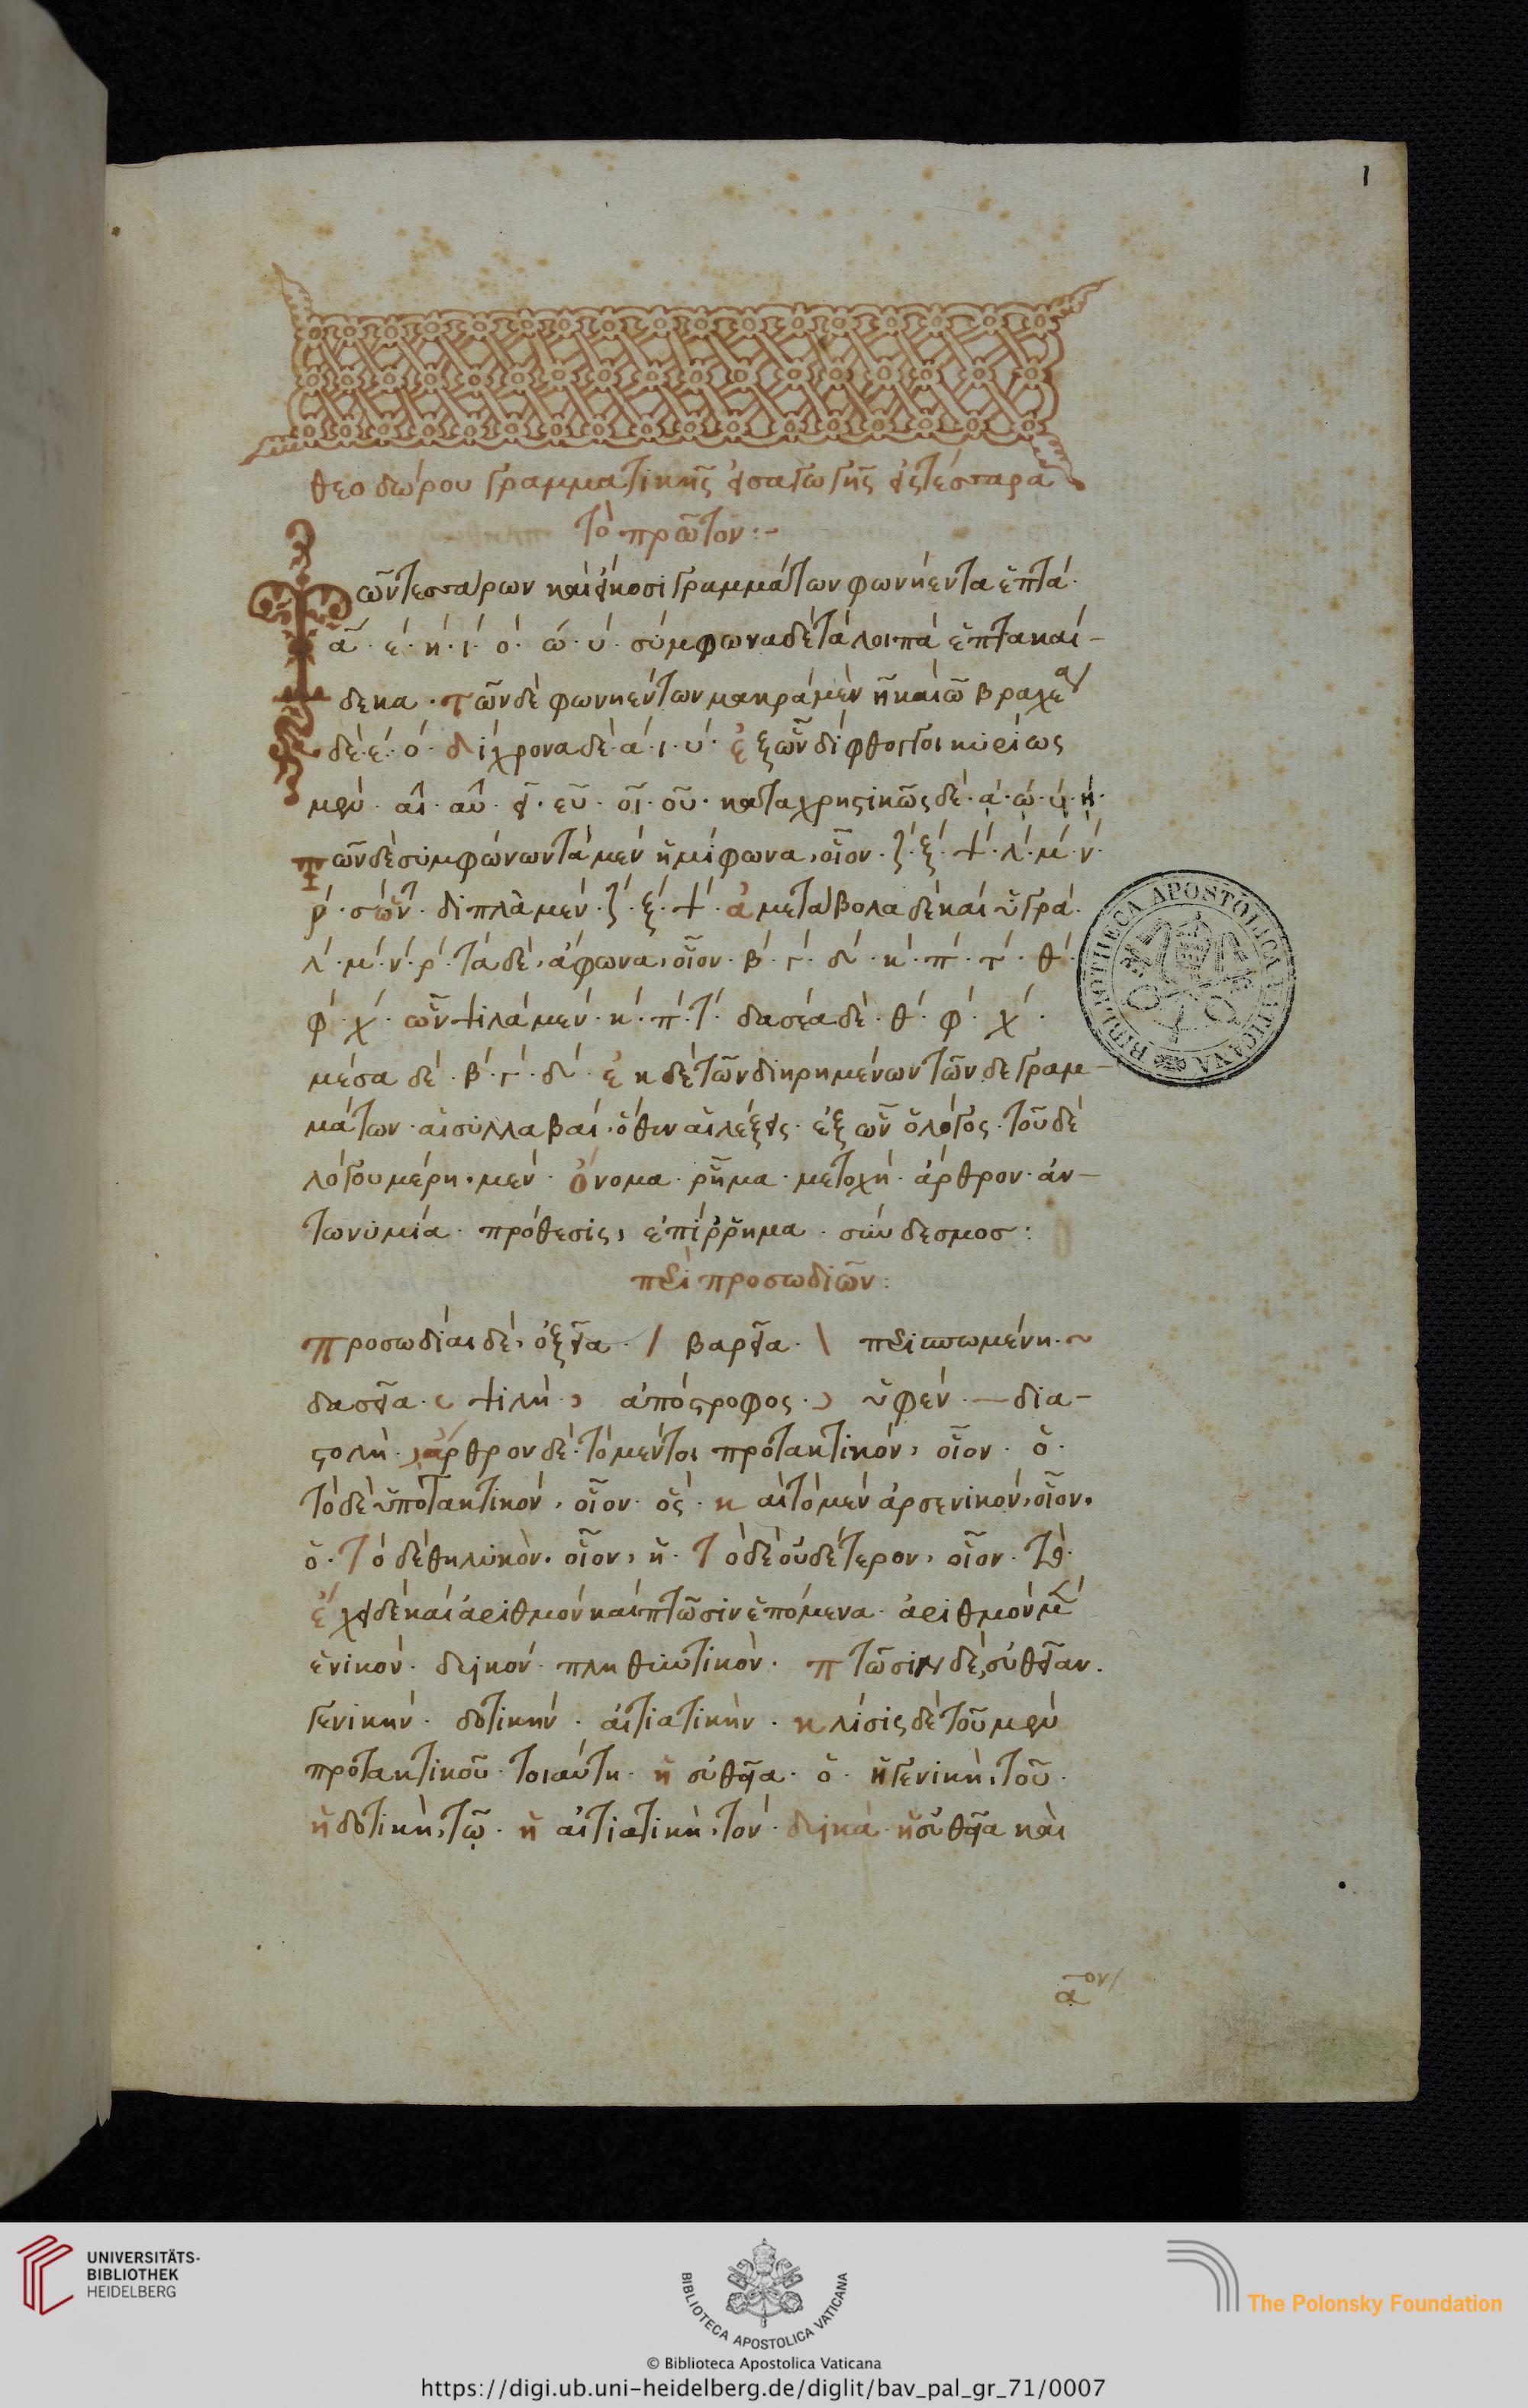 1
θεοδώρου γραμματικῆς εἰσαγωγῆς εἰς τέσσαρα
τὸ πρῶτον:-
Τῶν τεσσάρων καὶ εἴκοσι γραμμάτων φωνήεντα ἑπτά·
α · ε · η · ι · ο · ω · υ · σύμφωνα δὲ τὰ λοιπὰ ἑπτακαί-
δεκα · τῶν δὲ φωνηέντων μακρὰ μὲν η καὶ ω βραχέα
δὲ · ε · ο · δίχρονα δὲ · α · ι · υ · ἐξ ὧν δίφθογγοι κυρίως
μὲν · αι · αυ · ει · ευ · οι · ου · καταχρηστικῶς δὲ · ᾳ · ῳ · υι · ῃ ·
τῶν δὲ συμφώνων τὰ μὲν ἡμίφωνα, οἷον · ζ · ξ · ψ · λ · μ · ν ·
ρ · σ ὧν · διπλᾶ μὲν · ζ · ξ · ψ · ἀμετάβολα δὲ καὶ ὑγρά ·
λ · μ · ν · ρ · τὰ δὲ, ἄφωνα, οἷον · β · γ · δ · κ · π · τ · θ ·
φ · χ · ὧν ψιλὰ μὲν · κ · π · τ · δασέα δὲ · θ · φ · χ ·
μέσα δὲ · β · γ · δ · ἐκ δὲ τῶν διῃρημένων τῶν δε γραμ-
μάτων · αἱ συλλαβαί · ὅθεν αἱ λέξεις · ἐξ ὧν ὁ λόγος · τοῦ δὲ
λόγου μέρη · μὲν · ὄνομα · ῥῆμα · μετοχή · ἄρθρον · ἀν-
τωνυμία · πρόθεσις, ἐπίῤῥημα · σύνδεσμοσ:
περὶ προσωδιῶν:
προσωδίαι δὲ, ὀξεῖα · / βαρεῖα · \ περισπωμένη · ~
δασεῖα · ψιλή · ἀπόστροφος · ὑφέν · — δια-
στολή · , ἄρθρον δὲ · τὸ μέντοι προτακτικόν, οἷον · ὁ ·
τὸ δὲ ὑποτακτικόν, οἷον · ὅς · καὶ τὸ μὲν ἀρσενικόν, οἷον ·
ὁ · τὸ δὲ θηλυκὸν · οἷον, ἡ · τὸ δὲ οὐδέτερον, οἷον · τό ·
ἔχει δὲ καὶ ἀριθμὸν καὶ πτῶσιν ἑπόμενα · ἀριθμὸν μὲν
ἑνικόν · δυϊκόν · πληθυντικὸν · πτῶσιν δὲ, εὐθεῖαν ·
γενικήν · δοτικήν · αἰτιατικὴν · κλίσις δὲ τοῦ μὲν
προτακτικοῦ · τοιαύτη · ἡ εὐθεῖα · ὁ · ἡ γενικὴ, τοῦ ·
ἡ δοτικὴ, τῷ · ἡ αἰτιατικὴ, τόν · δυϊκά · ἡ εὐθεῖα καὶ
αον
BIBLIOTHECA APOSTOLICA VATICANA
UNIVERSITÄTS-
BIBLIOTHEK
HEIDELBERG
BIBLIOTECA APOSTOLICA VATICANA
The Polonsky Foundation
© Biblioteca Apostolica Vaticana
https://digi.ub.uni-heidelberg.de/diglit/bav_pal_gr_71/0007